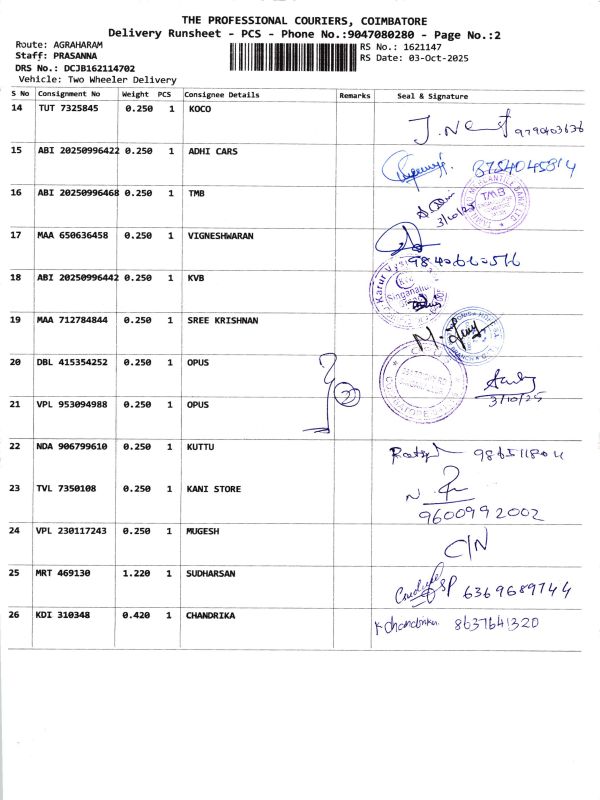 THE PROFESSIONAL COURIERS, COIMBATORE
Delivery Runsheet - PCS - Phone No.:9047080280 - Page No.:2
Route: AGRAHARAM
Staff: PRASANNA
DRS No.: DCJB162114702
Vehicle: Two Wheeler Delivery
RS No.: 1621147
RS Date: 03-Oct-2025
S No Consignment No Weight PCS Consignee Details Remarks Seal & Signature
14 TUT 7325845 0.250 1 KOCO
15 ABI 20250996422 0.250 1 ADHI CARS
16 ABI 20250996468 0.250 1 TMB 3/10/25
17 MAA 650636458 0.250 1 VIGNESHWARAN
18 ABI 20250996442 0.250 1 KVB
19 MAA 712784844 0.250 1 SREE KRISHNAN
20 DBL 415354252 0.250 1 OPUS 2
21 VPL 953094988 0.250 1 OPUS 3/10/25
22 NDA 906799610 0.250 1 KUTTU
23 TVL 7350108 0.250 1 KANI STORE
9600992002
24 VPL 230117243 0.250 1 MUGESH C/N
25 MRT 469130 1.220 1 SUDHARSAN 6369689744
26 KDI 310348 0.420 1 CHANDRIKA K Chandrika 8637641320